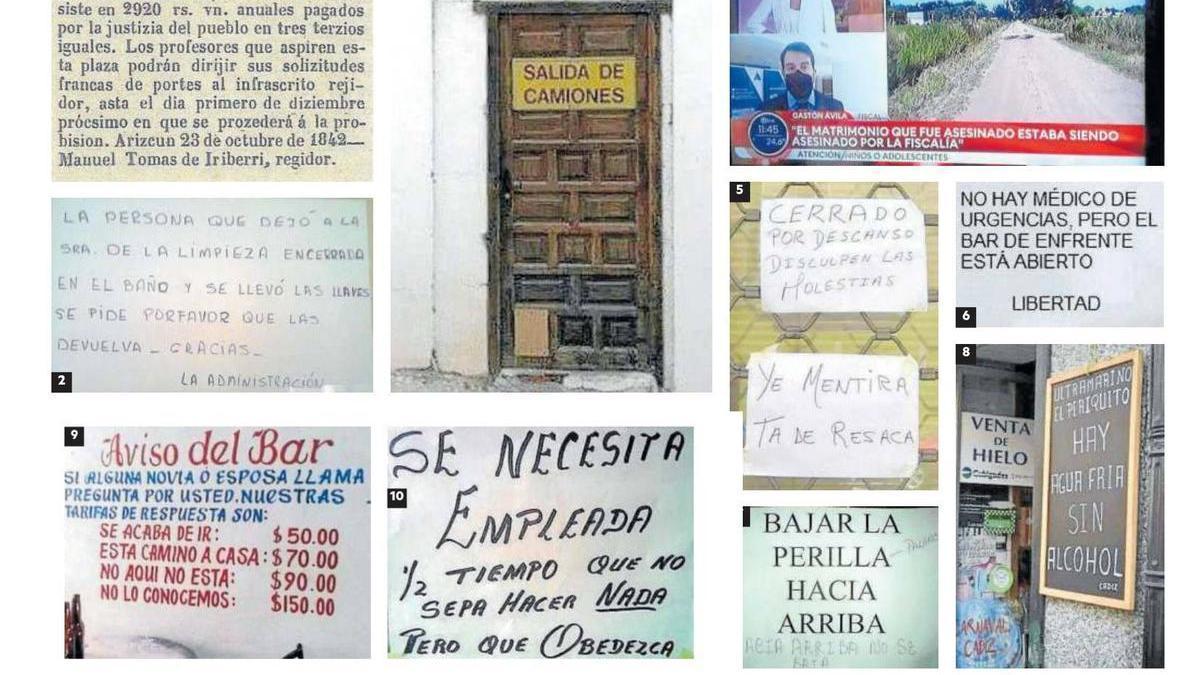 siste en 2920 rs. vn. anuales pagados
por la justizia del pueblo en tres terzios
iguales. Los profesores que aspiren es-
ta plaza podrán dirijir sus solizitudes
francas de portes al infrascrito reji-
dor, asta el dia primero de diziembre
prócsimo en que se prozederá á la pro-
bision. Arizcun 23 de octubre de 1842—
Manuel Tomas de Iriberri, regidor.
SALIDA DE
CAMIONES
GASTÓN ÁVILA FISCAL
11:45
24,6°
"EL MATRIMONIO QUE FUE ASESINADO ESTABA SIENDO
ASESINADO POR LA FISCALÍA"
ATENCIÓN/NIÑOS O ADOLESCENTES
LA PERSONA QUE DEJÓ A LA
SRA. DE LA LIMPIEZA ENCERRADA
EN EL BAÑO Y SE LLEVÓ LAS LLAVES
SE PIDE PORFAVOR QUE LAS
DEVUELVA - GRACIAS -
LA ADMINISTRACIÓN
2
5
CERRADO
POR DESCANSO
DISCULPEN LAS
MOLESTIAS
YE MENTIRA
TA DE RESACA
NO HAY MÉDICO DE
URGENCIAS, PERO EL
BAR DE ENFRENTE
ESTÁ ABIERTO
LIBERTAD
6
8
VENTA
DE
HIELO
Cubigades
ULTRAMARINO
EL PERIQUITO
HAY
AGUA FRIA
SIN
ALCOHOL
CADIZ
CARNAVAL
CADIZ
9
Aviso del Bar
SI ALGUNA NOVIA Ó ESPOSA LLAMA
PREGUNTA POR USTED.NUESTRAS
TARIFAS DE RESPUESTA SON:
SE ACABA DE IR: $50.00
ESTA CAMINO A CASA: $70.00
NO AQUI NO ESTA: $90.00
NO LO CONOCEMOS: $150.00
10
SE NECESITA
EMPLEADA
1/2 TIEMPO QUE NO
SEPA HACER NADA
PERO QUE OBEDEZCA
BAJAR LA
PERILLA
HACIA
ARRIBA
ARRIBA NO SE